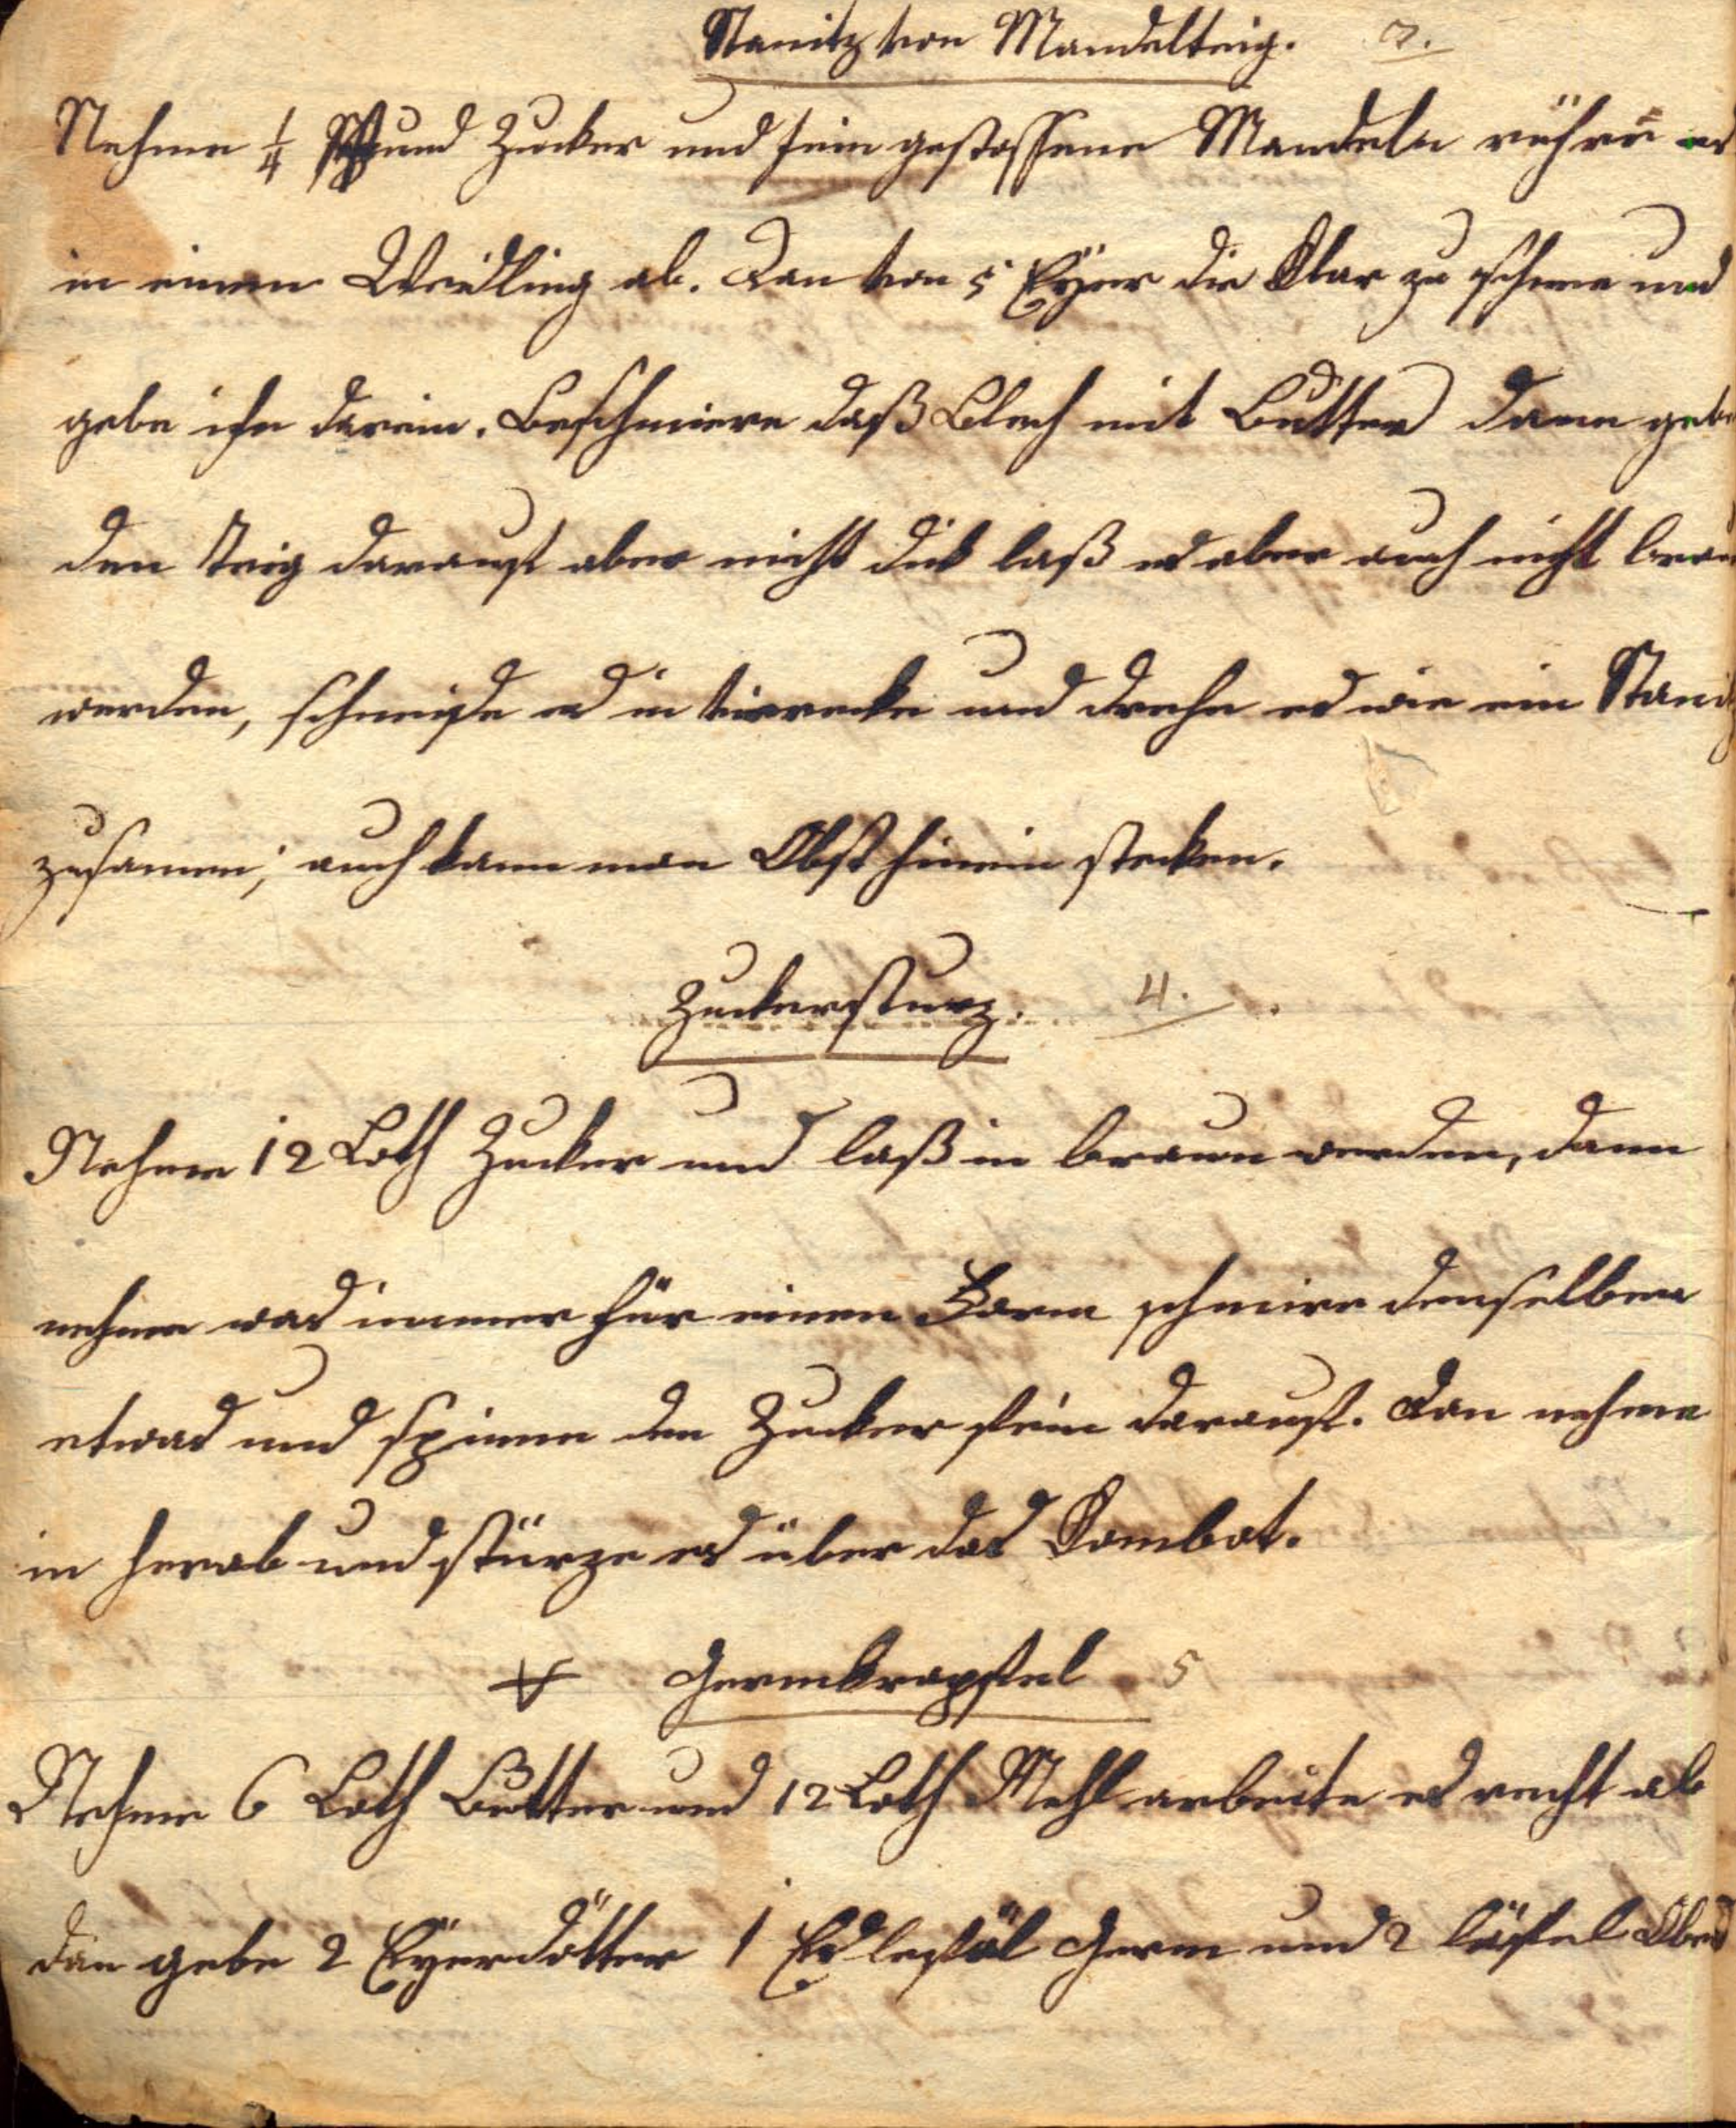 Stanitz von Mandelteig. 3.
Nehme 1/4 Pfund Zucker und fein gestossene Mandeln rühre es
in einen Weidling ab. Dan von 5 Eÿer die Klar zu schnee und
gebe ihn darein. Beschmiere daß Blech mit Butter dann gebe
den Teig darauf aber nicht dik laß es aber auch nicht brau
werden, schneide es in vierecke und drehe es wie ein Stanitz
zusamen; auch kann man Obst hinein stecken.
Zuckersturz. 4.
Nehme 12 Loth Zucker und laß in braun werden, dann
nehme was immer für einen Form schmire denselben
etwas und spinne den Zucker fein darauf. Dan nehme
in herab und stürze es über das Combot.
Germkrapfel 5
Nehme 6 Loth Butter und 12 Loth Mehl arbeite es recht ab
dan gebe 2 Eÿerdötter 1 Esleföl Germ und 2 löfel Obers